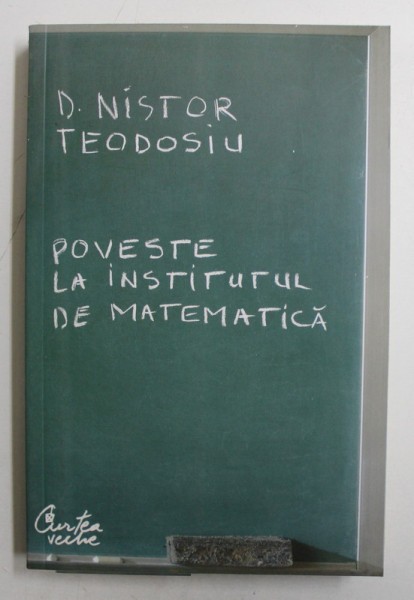 D. NISTOR
TEODOSIU
POVESTE
LA INSTITUTUL
DE MATEMATICĂ
Curtea
veche